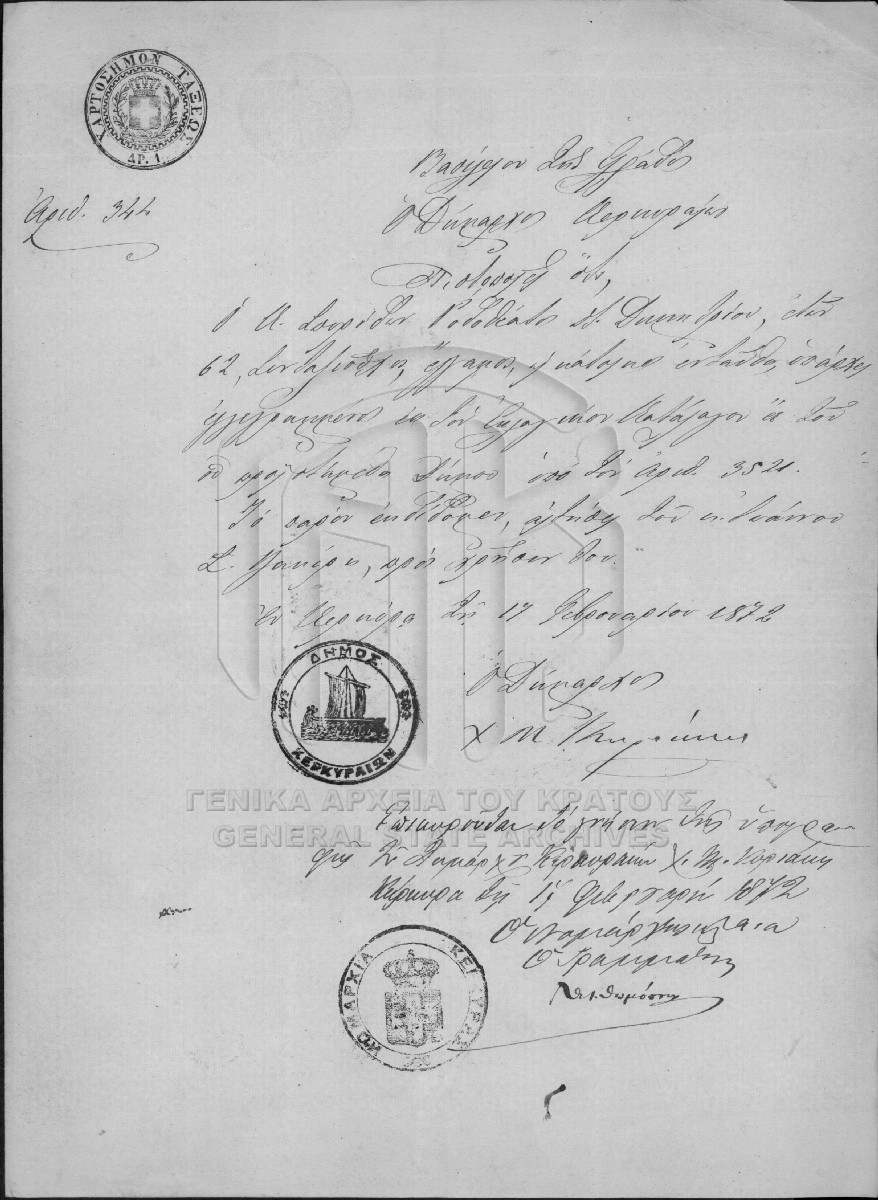 ΧΑΡΤΟΣΗΜΟΝ ΤΑΞΕΩΣ
ΔΡ. 1.
Βασίλειον της Ελλάδος
Αριθ. 344
Ο Δήμαρχος Κερκυραίων
Πιστοποιεί ότι,
Ο Κ. Σπυρίδων Ροδοθεάτος του Δημητρίου, ετών
62, έγγαμος, κάτοικος ενταύθα, υπάρχει
εγγεγραμμένος εις τον Κατάλογον
Δήμου υπό τον Αριθ. 3521.
Το παρόν εκδίδομεν, αιτήσει του κ. Ιωάννου
Σ. προς χρήσιν του.
Εν Κερκύρα τη 17 Φεβρουαρίου 1872
Ο Δήμαρχος
ΔΗΜΟΣ
ΚΕΡΚΥΡΑΙΩΝ
Χ Μ. Κυριάκης
ΓΕΝΙΚΑ ΑΡΧΕΙΑ ΤΟΥ ΚΡΑΤΟΥΣ
GENERAL STATE ARCHIVES
Επικυρούται το γνήσιον της υπογρα
φής του Δημάρχου Κερκυραίων Χ. Μ. Κυριάκη
Κέρκυρα τη 17 Φεβρουαρίου 1872
Ο Γραμματεύς
ΝΟΜΑΡΧΙΑ ΚΕΡΚΥΡΑΣ